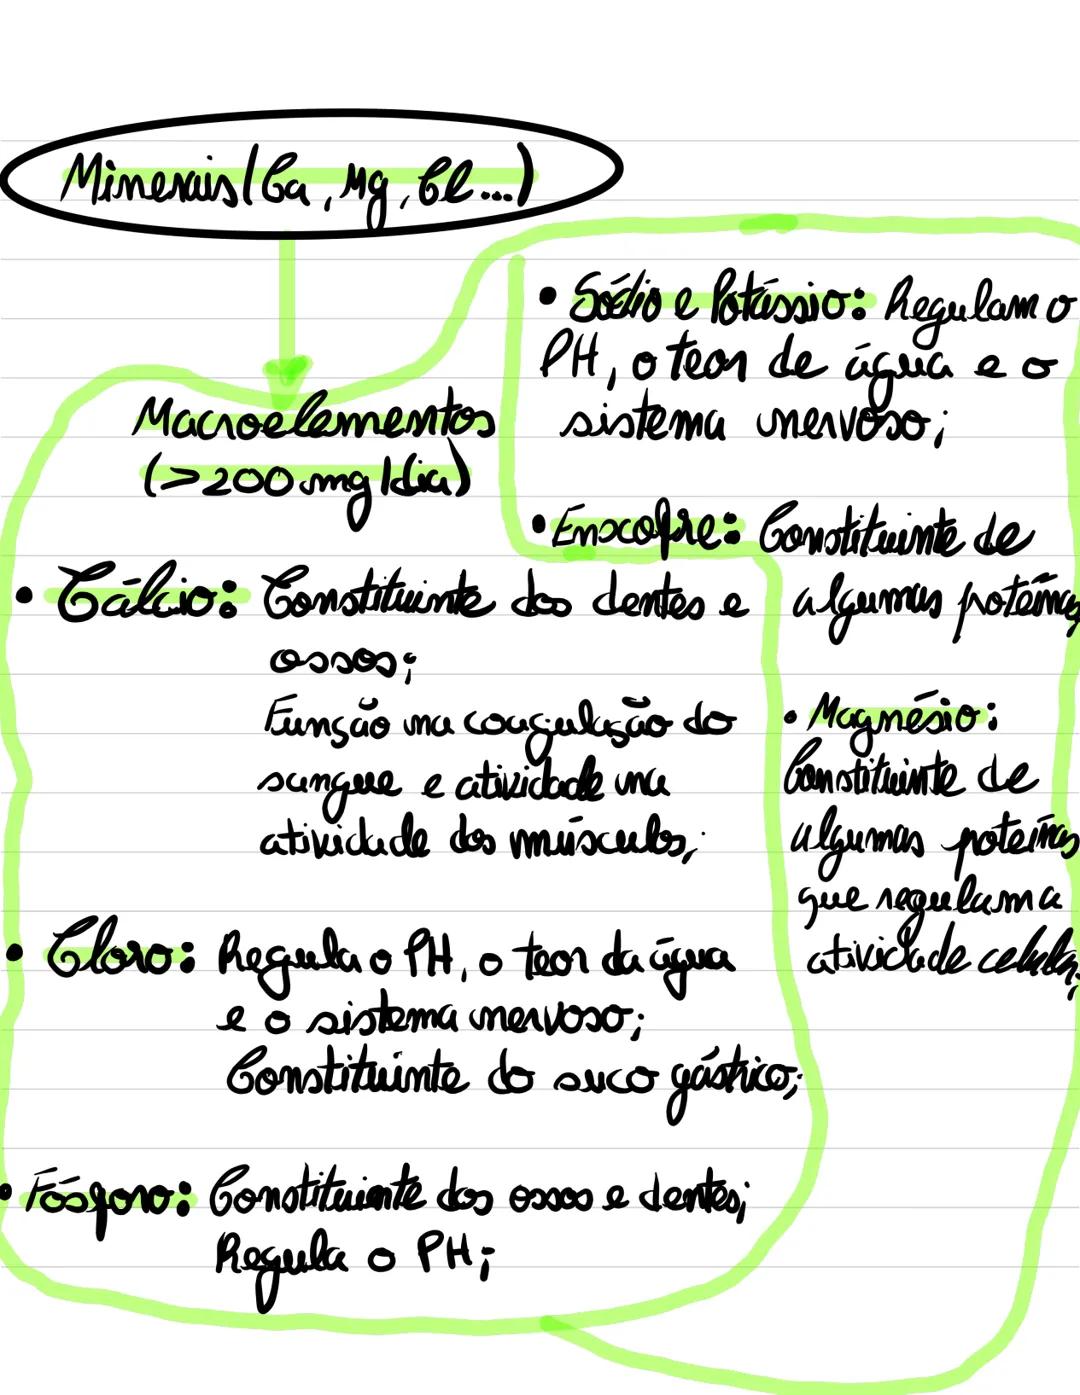 Minerais (Ca, Mg, Cl...)
Macroelementos
(>200 mg/dia)
• Cálcio: Constituinte dos dentes e
ossos;
Função na coagulação do
sangue e atividade na
atividade dos músculos;
• Cloro: Regula o PH, o teor da água
e o sistema nervoso;
Constituinte do suco gástrico;
• Fósforo: Constituinte dos ossos e dentes;
Regula o PH;
• Sódio e Potássio: Regulam o
PH, o teor de água e o
sistema nervoso;
• Enxofre: Constituinte de
algumas poteínas
• Magnésio:
Constituinte de
algumas poteínas
que regulam a
atividade celular;